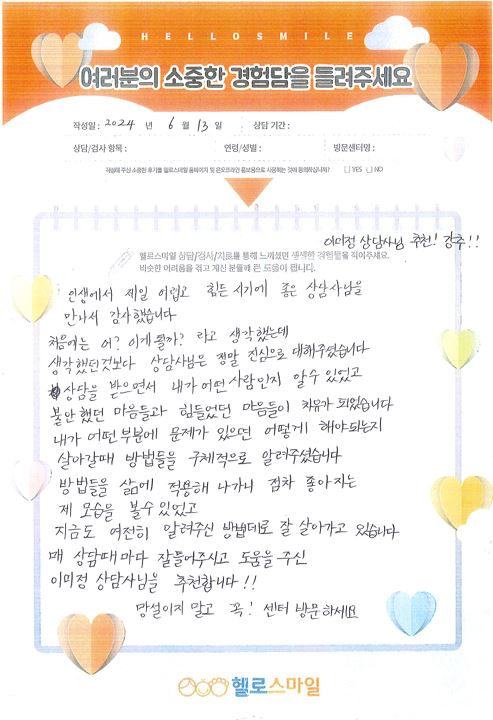 HELLOSMILE
여러분의 소중한 경험담을 들려주세요
작성일 : 2024 년 6 월 13 일 상담 기간 :
상담/검사 항목 : 연령/성별 : 방문센터명 :
작성해 주신 소중한 후기를 헬로스마일 홈페이지 및 온오프라인 홍보용으로 사용하는 것에 동의하십니까? □ YES □ NO
이미정 상담사님 추천! 강추!!
헬로스마일 상담/검사/치료를 통해 느끼셨던 생생한 경험들을 적어주세요.
비슷한 어려움을 겪고 계신 분들께 큰 도움이 됩니다.
인생에서 제일 어렵고 힘든 시기에 좋은 상담사님을
만나서 감사했습니다
처음에는 어? 이게 뭘까? 라고 생각했는데
생각했던것보다 상담사님은 정말 진심으로 대해주였습니다
상담을 받으면서 내가 어떤 사람인지 알수 있었고
불안했던 마음들과 힘들었던 마음들이 치유가 되었습니다
내가 어떤부분에 문제가 있으면 어떻게 해야되는지
살아갈때 방법들을 구체적으로 알려주셨습니다
방법들을 삶에 적용해 나가니 점차 좋아지는
제 모습을 볼수있었고
지금도 여전히 알려주신 방법데로 잘 살아가고 있습니다
매 상담때마다 잘들어주시고 도움을 주신
이미정 상담사님을 추천합니다!!
망설이지 말고 꼭! 센터 방문하세요
헬로스마일